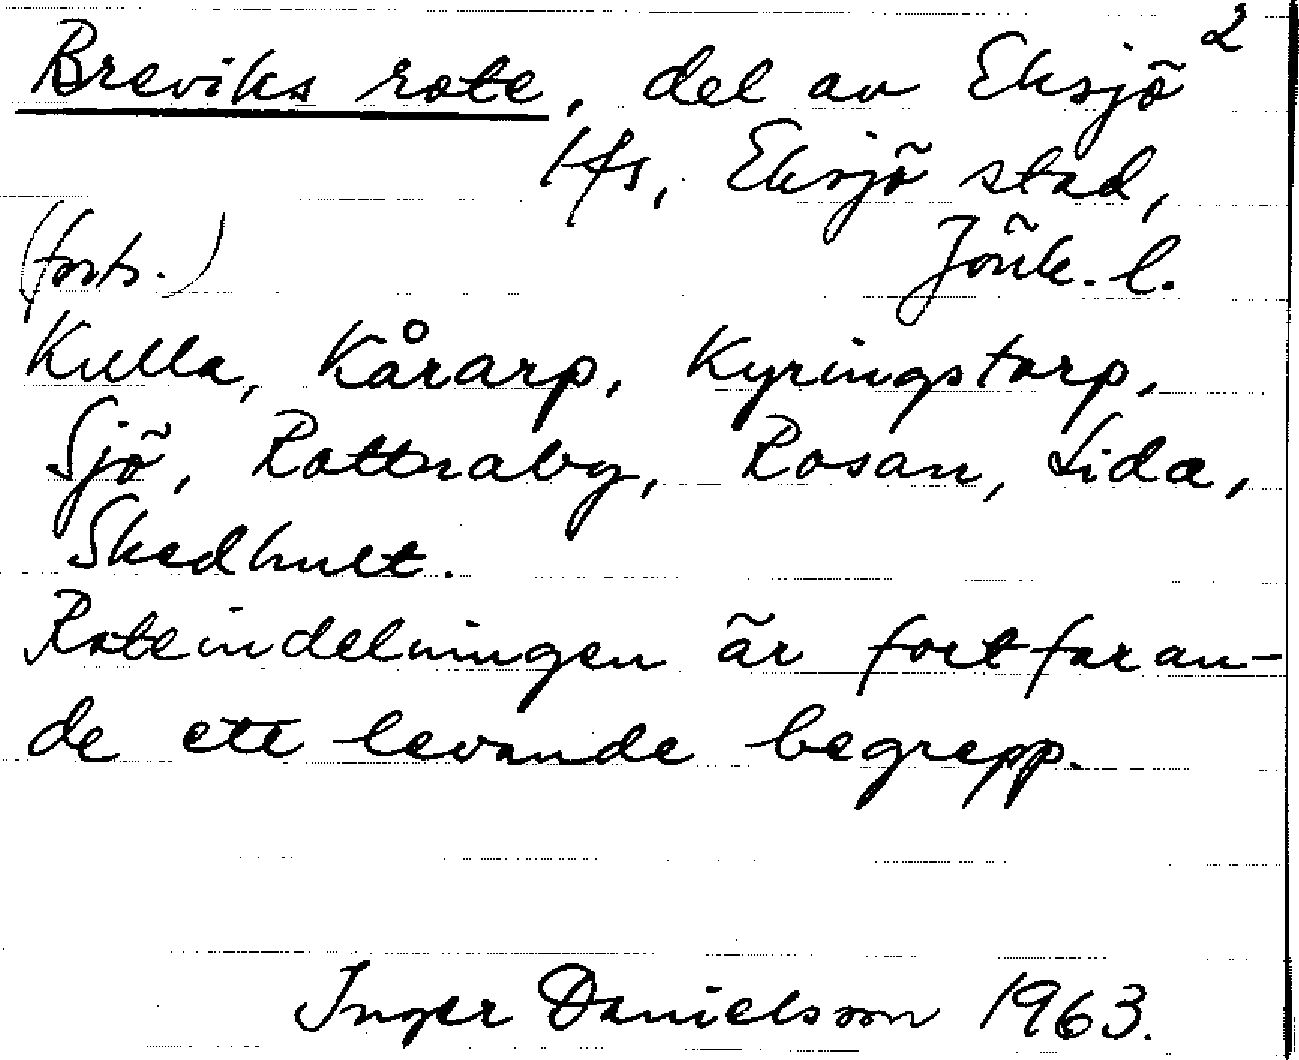 2
Breviks rote, del av Eksjö
lfs, Eksjö stad,
(forts.) Jönk. l.
Kulla, Kårarp, Kyringstorp,
Sjö, Rottnaby, Rosan, Lida,
Skedhult.
Roteindelningen är fortfaran-
de ett levande begrepp.
Inger Danielsson 1963.